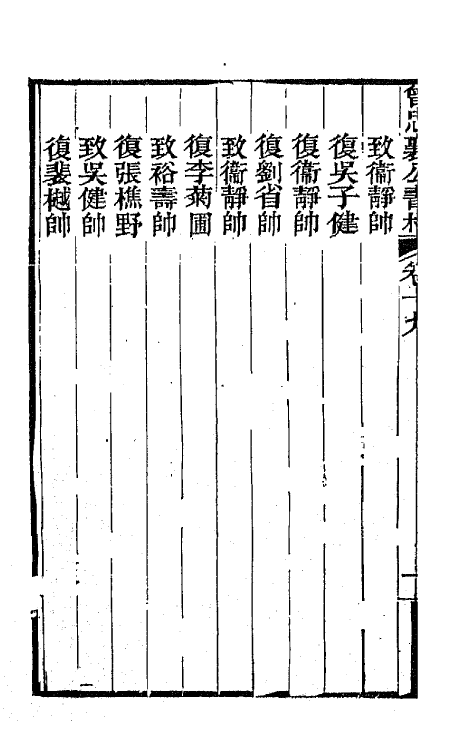 曾忠襄公書札 卷十九
致衞靜帥
復吳子健
復衞靜帥
復劉省帥
致衞靜帥
復李菊圃
致裕壽帥
復張樵野
致吳健帥
復裴樾帥